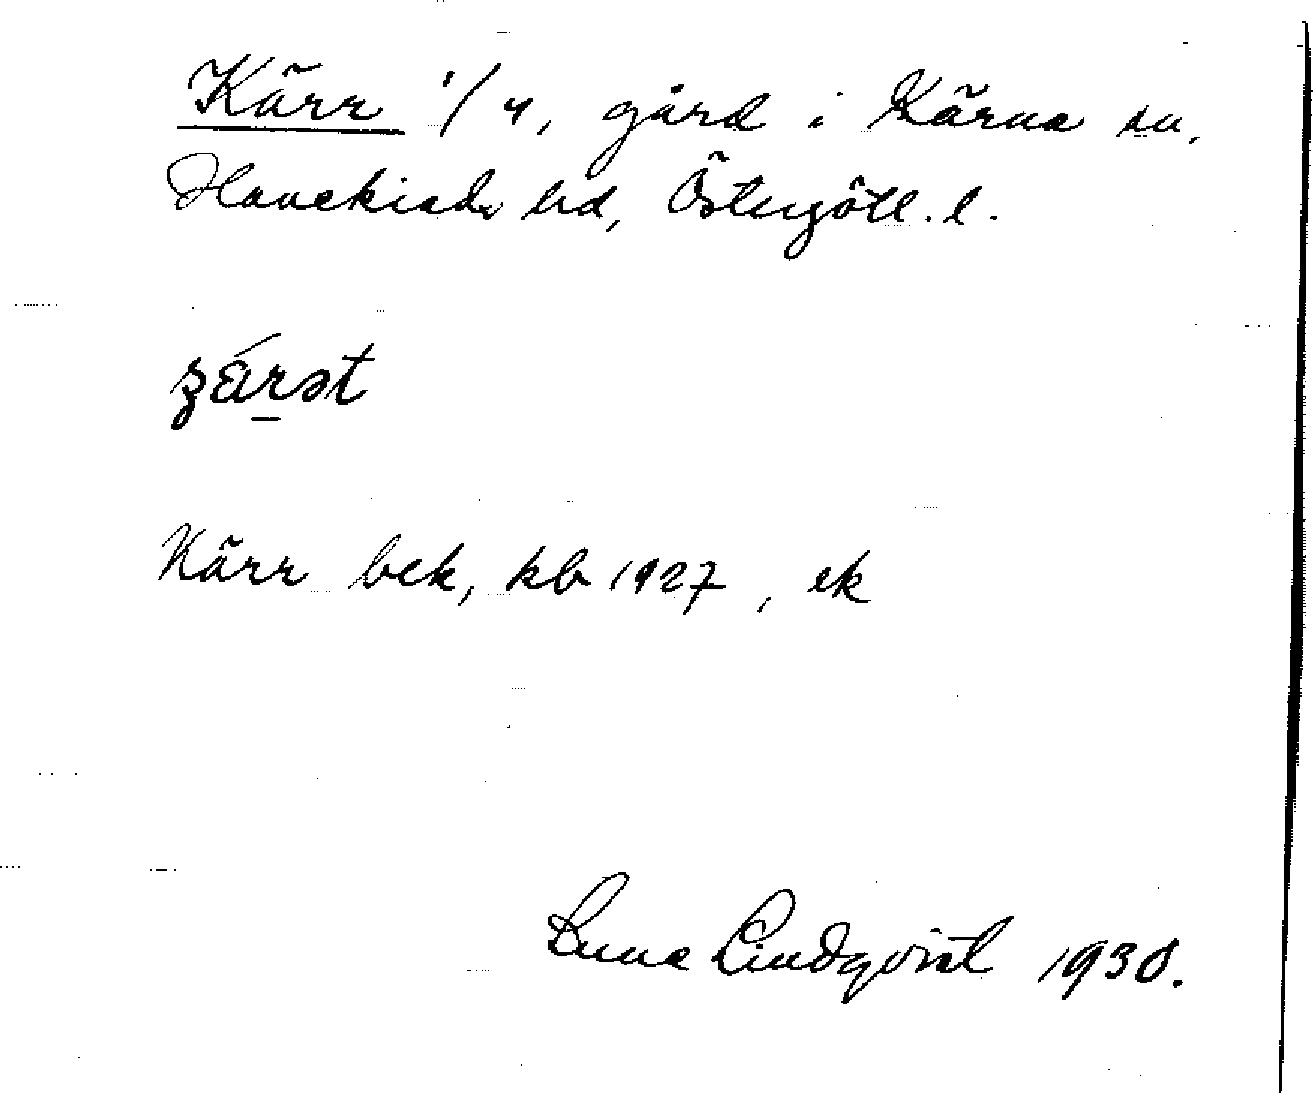 Kärr 1/4, gård i Kärna sn,
Hanekinds hd, Östergötl. l.
Kärr bek, kb 1927, ek
Sune Lindqvist 1930.